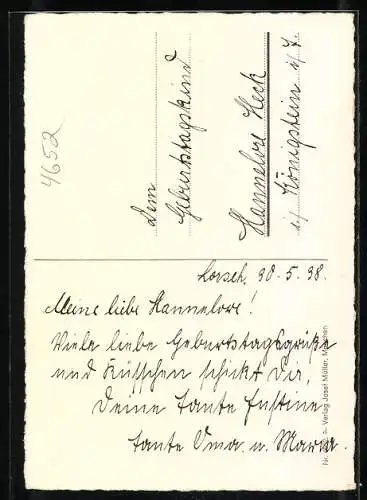 4652
Dem
Geburtstagskind
Hannelore Heck
Königstein i/T.
Lorsch, 30.5.38.
Meine liebe Hannelore!
Viele liebe Geburtstagsgrüße
und Küsschen schickt Dir,
Deine Tante
Tante Oma u. Maria.
Nr. Verlag Josef Müller, München